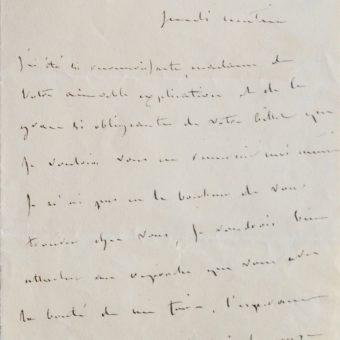 jeudi matin
J'ai été si reconnaissante, madame de
votre aimable explication et de la
grace si obligeante de votre billet que
je voudrois vous en remercier moi même
Je n'ai pas eu le bonheur de vous
trouver chez vous, je voudrois bien
attacher au reproche que vous avez
la bonté de me faire, l'espérance